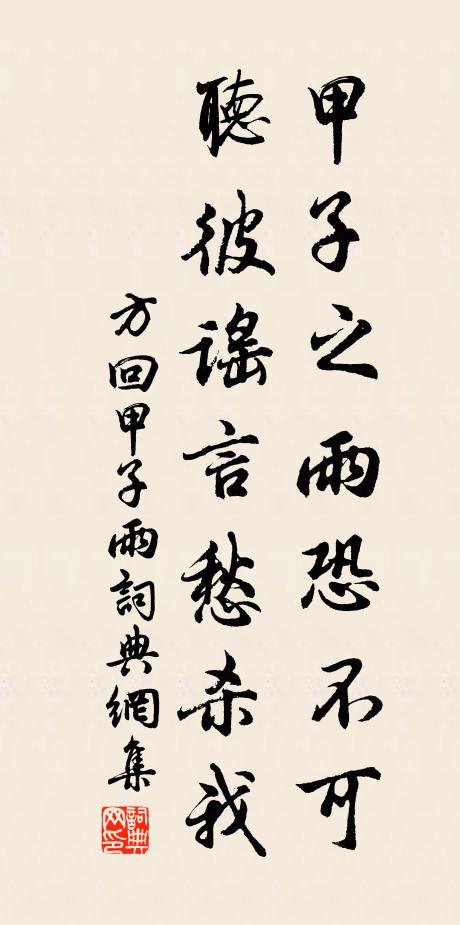 甲子之雨恐不可
聽彼謠言愁杀我
方回甲子雨詞典網集
詞典网印